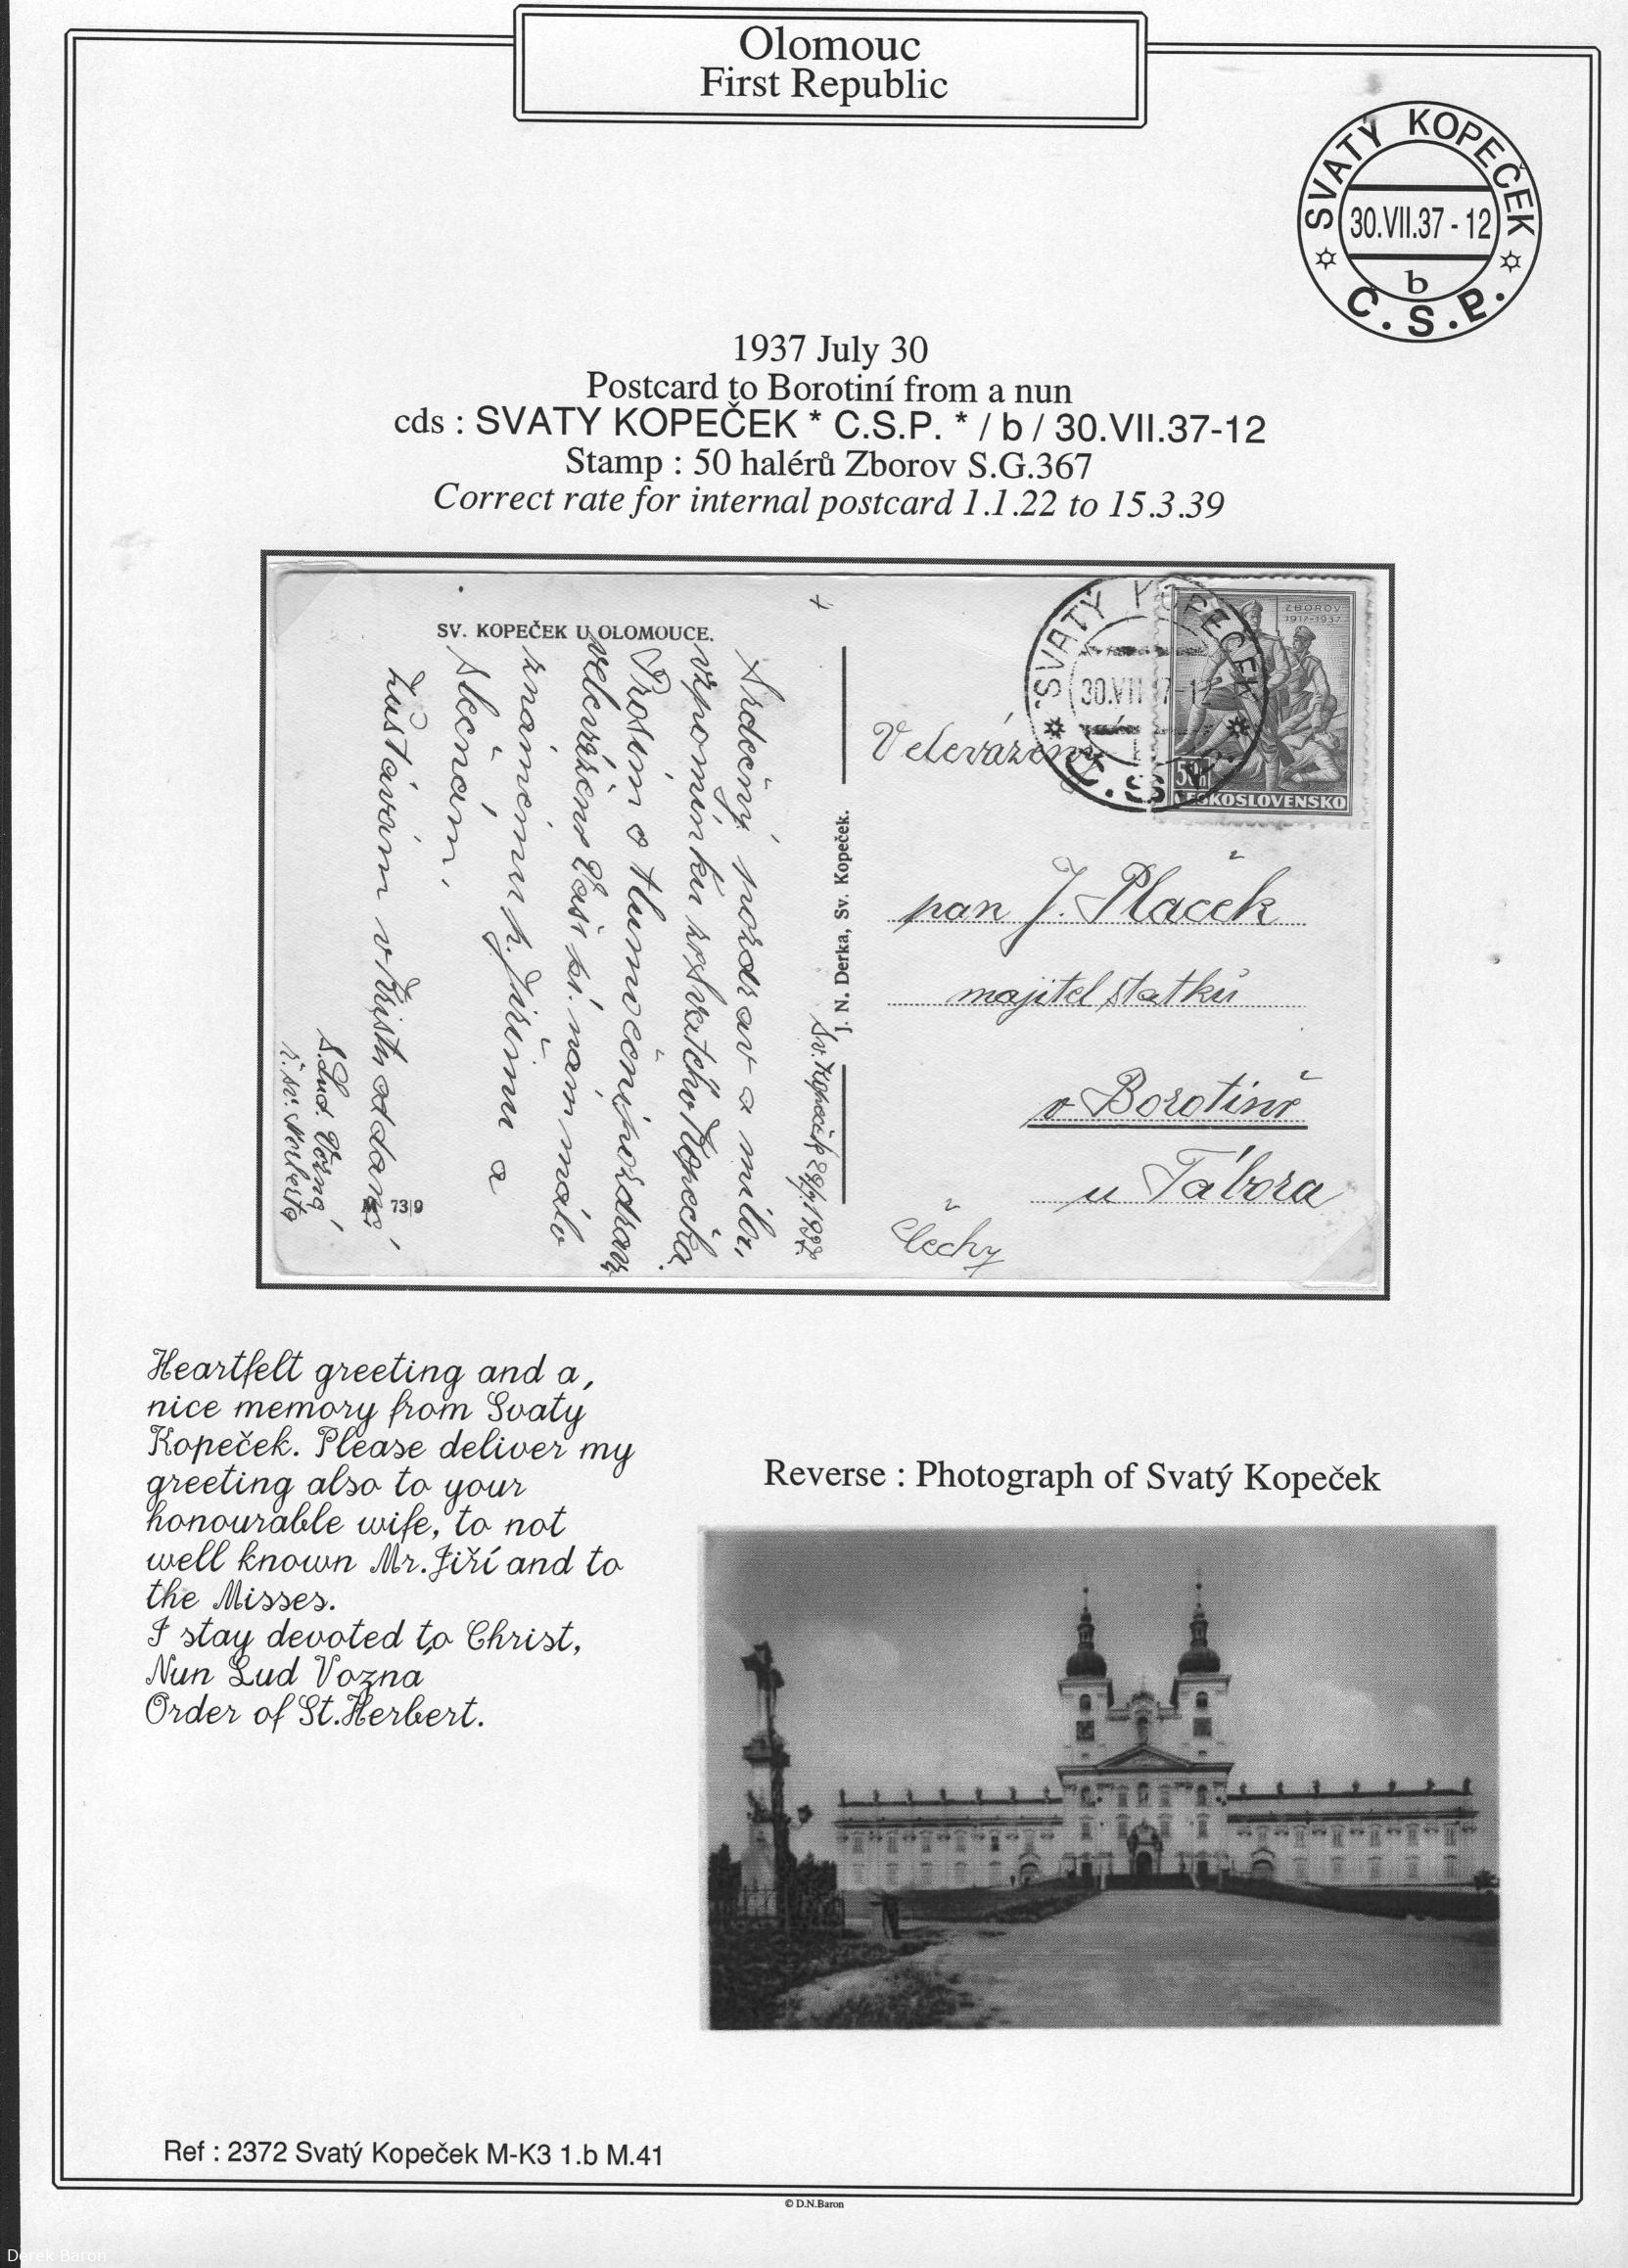 Olomouc
First Republic
SVATÝ KOPEČEK
30.VII.37 - 12
b
Č.S.P.
1937 July 30
Postcard to Borotiní from a nun
cds : SVATY KOPEČEK * C.S.P. * / b / 30.VII.37-12
Stamp : 50 halérů Zborov S.G.367
Correct rate for internal postcard 1.1.22 to 15.3.39
SV. KOPEČEK U OLOMOUCE.
Srdečný pozdrav a milou
vzpomínku ze svatého Kopečka.
Prosím o tlumočení pozdravu
velevážené Vaší pí. nám málo
známému p. Jiřímu a
Slečnám.
Zůstávám v Kristu oddaná
S. Lud. Vozná
ř. sv. Norberta
M 73|9
Sv. Kopeček 29/7 1937
J. N. Derka, Sv. Kopeček.
SVATÝ KOPEČEK
30.VII 37-12
Č.S.P.
ZBOROV
1917-1937
50h
ČESKOSLOVENSKO
Velevážený
pan J. Placěk
majitel statků
v Borotině
u Tábora
Čechy
Heartfelt greeting and a,
nice memory from Svaty
Kopeček. Please deliver my
greeting also to your
honourable wife, to not
well known Mr.Jiří and to
the Misses.
I stay devoted to Christ,
Nun Lud Vozná
Order of St.Herbert.
Reverse : Photograph of Svatý Kopeček
Ref : 2372 Svatý Kopeček M-K3 1.b M.41
© D.N.Baron
Derek Baron